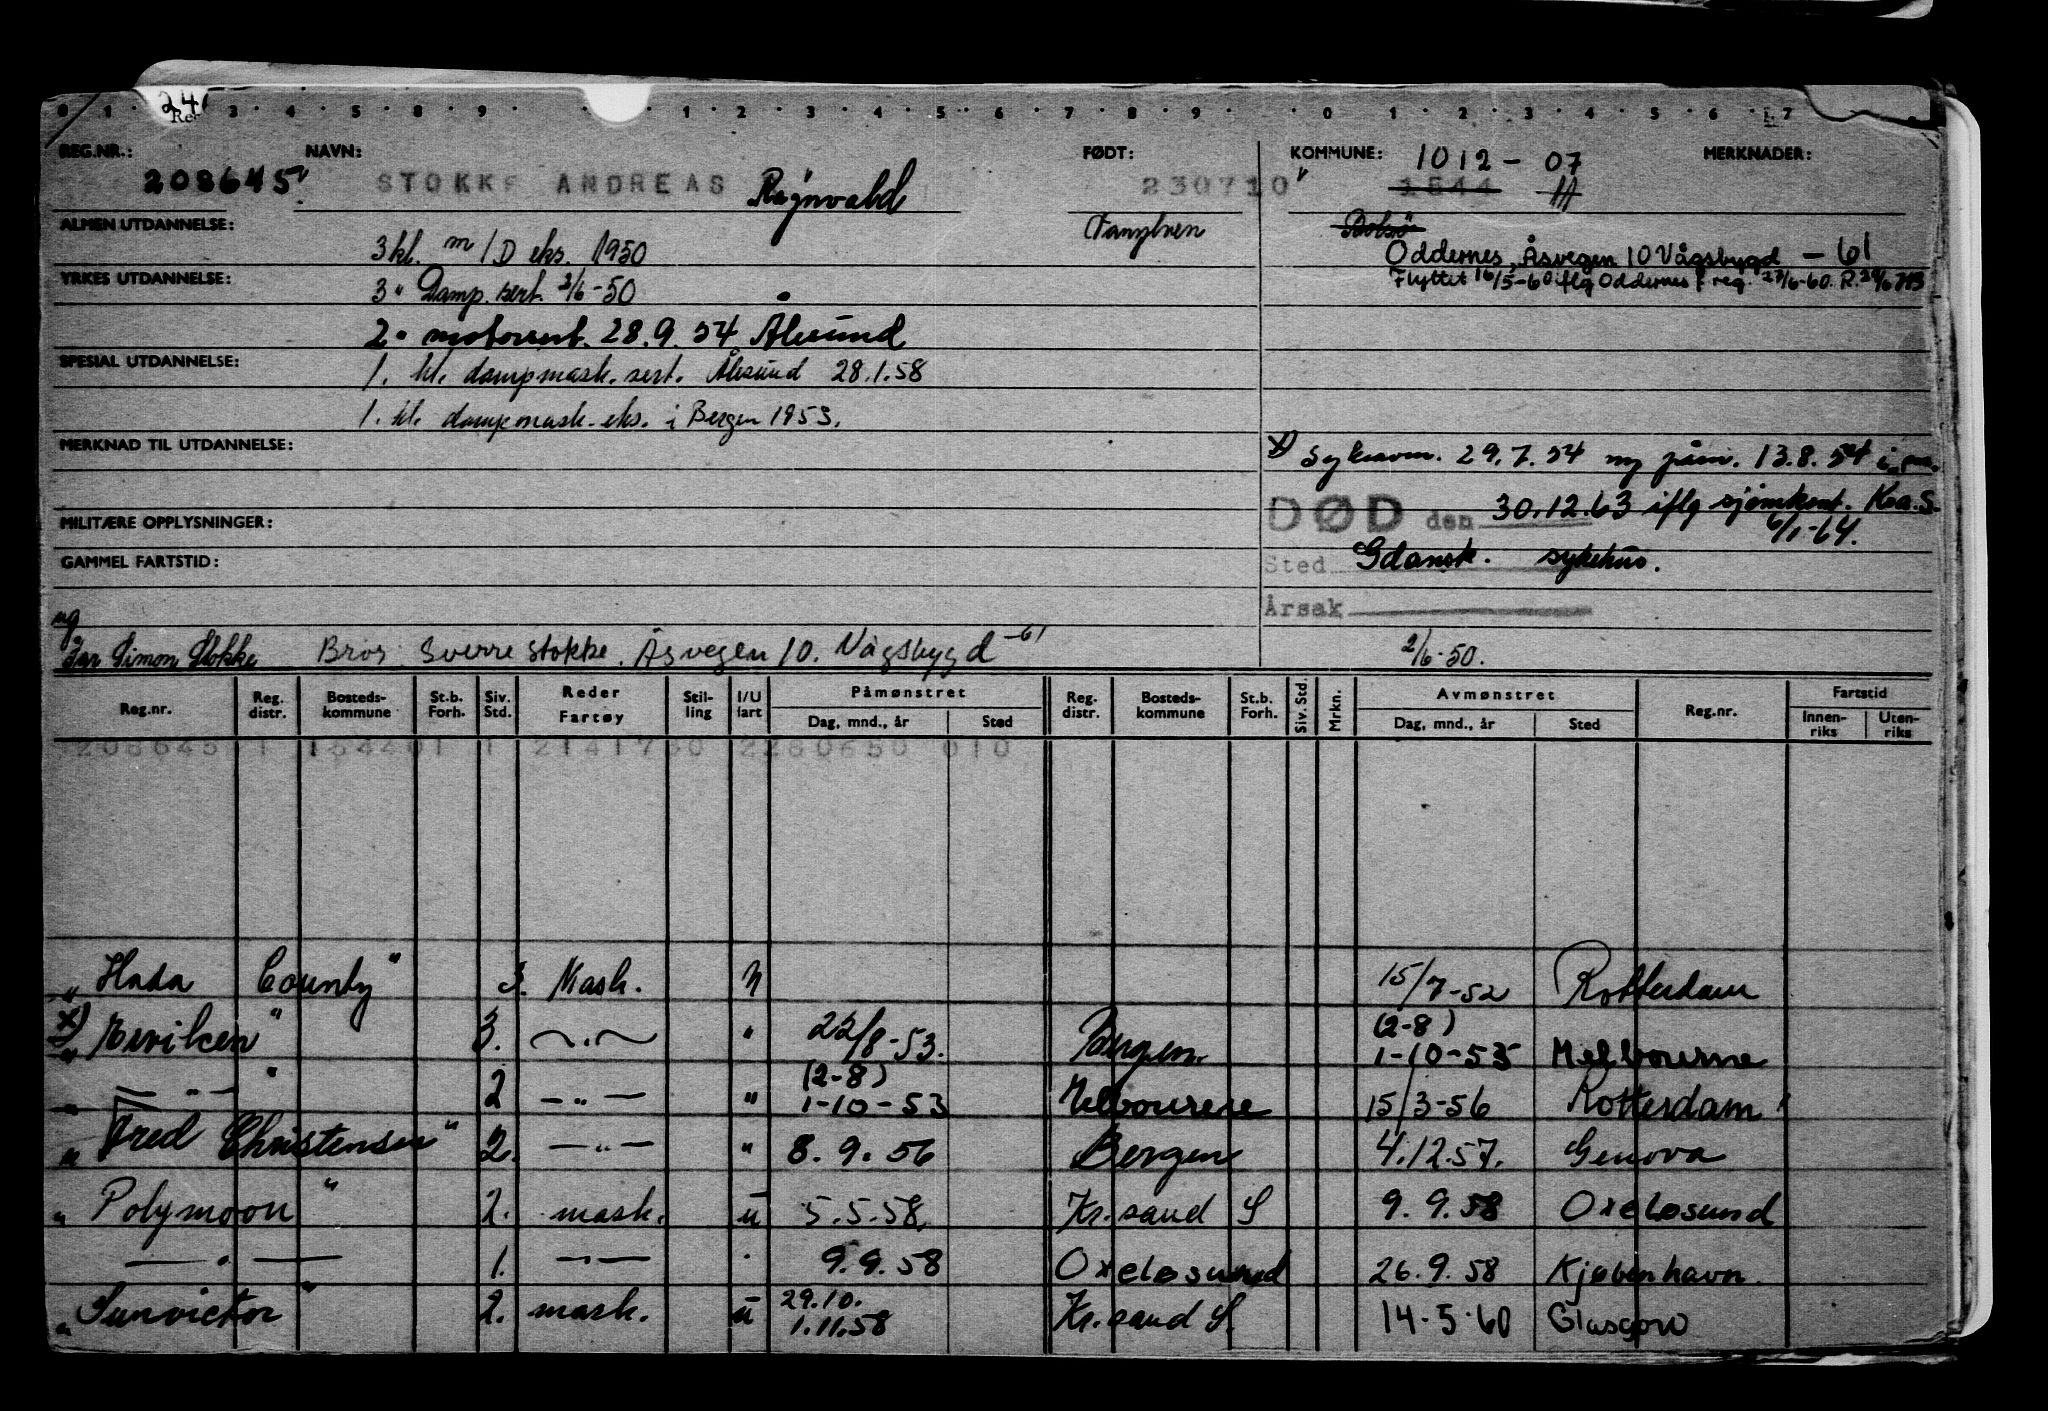 24 Re
0 1 3 4 5 8 9 1 2 3 4 5 6 7 8 9 0 1 2 3 4 5 6 7
REG.NR.: NAVN: FØDT: KOMMUNE: 1012 - 07 MERKNADER:
208645 STOKKE ANDREAS Ragnvald 230710 1544
ALMEN UTDANNELSE: 3 kl. m/D eks. 1950 Bolsø
Oddernes, Åsvegen 10 Vågsbygd - 61
YRKES UTDANNELSE: 3 " Damp. sert. 2/6-50 Flyttet 16/5-60 iflg Oddernes f reg. 27/6-60.
2 " motorsert. 28.9.54 Ålesund
SPESIAL UTDANNELSE: 1. kl. dampmask. sert. Ålesund 28.1.58
1. kl. dampmask. eks. i Bergen 1953.
MERKNAD TIL UTDANNELSE:
x) Sykeavm. 29.7.54 ny påm. 13.8.54
MILITÆRE OPPLYSNINGER: DØD den 30.12.63 iflg sjømkont. Kr.a.S. 6/1-64.
GAMMEL FARTSTID: Sted Gdansk. sykehus.
Årsak
Far Simon Stokke Bror Sverre Stokke. Åsvegen 10. Vågsbygd -61 2/6-50.
Reg.nr. Reg. distr. Bosteds-kommune St.b. Forh. Siv. Std. Reder Fartøy Stil-ling I/U fart Påmønstret Dag, mnd., år Sted Reg. distr. Bosteds-kommune St.b. Forh. Siv. Std. Mrkn. Avmønstret Dag, mnd., år Sted Reg.nr. Fartstid Innen-riks Uten-riks
208645 1 154401 1 2141730 2280650 010
" Hada County " 3. Mask. U 15/7-52 Rotterdam
x) " Ervilcen " 3. -"- " 22/8-53. Bergen (2-8) 1-10-53 Melbourne
" -"- " 2 -"- " (2-8) 1-10-53 Melbourne 15/3-56 Rotterdam
" Fred Christensen " 2. -"- " 8.9.56 Bergen 4.12.57. Genova
" Polymoon " 2. mask. u 5.5.58. Kr.sand S 9.9.58 Oxeløsund
-"- 1. -"- " 9.9.58 Oxeløsund 26.9.58 Kjøbenhavn.
" Sunvictor " 2. mask. u 29.10. 1.11.58 Kr.sand S. 14.5.60 Glasgow